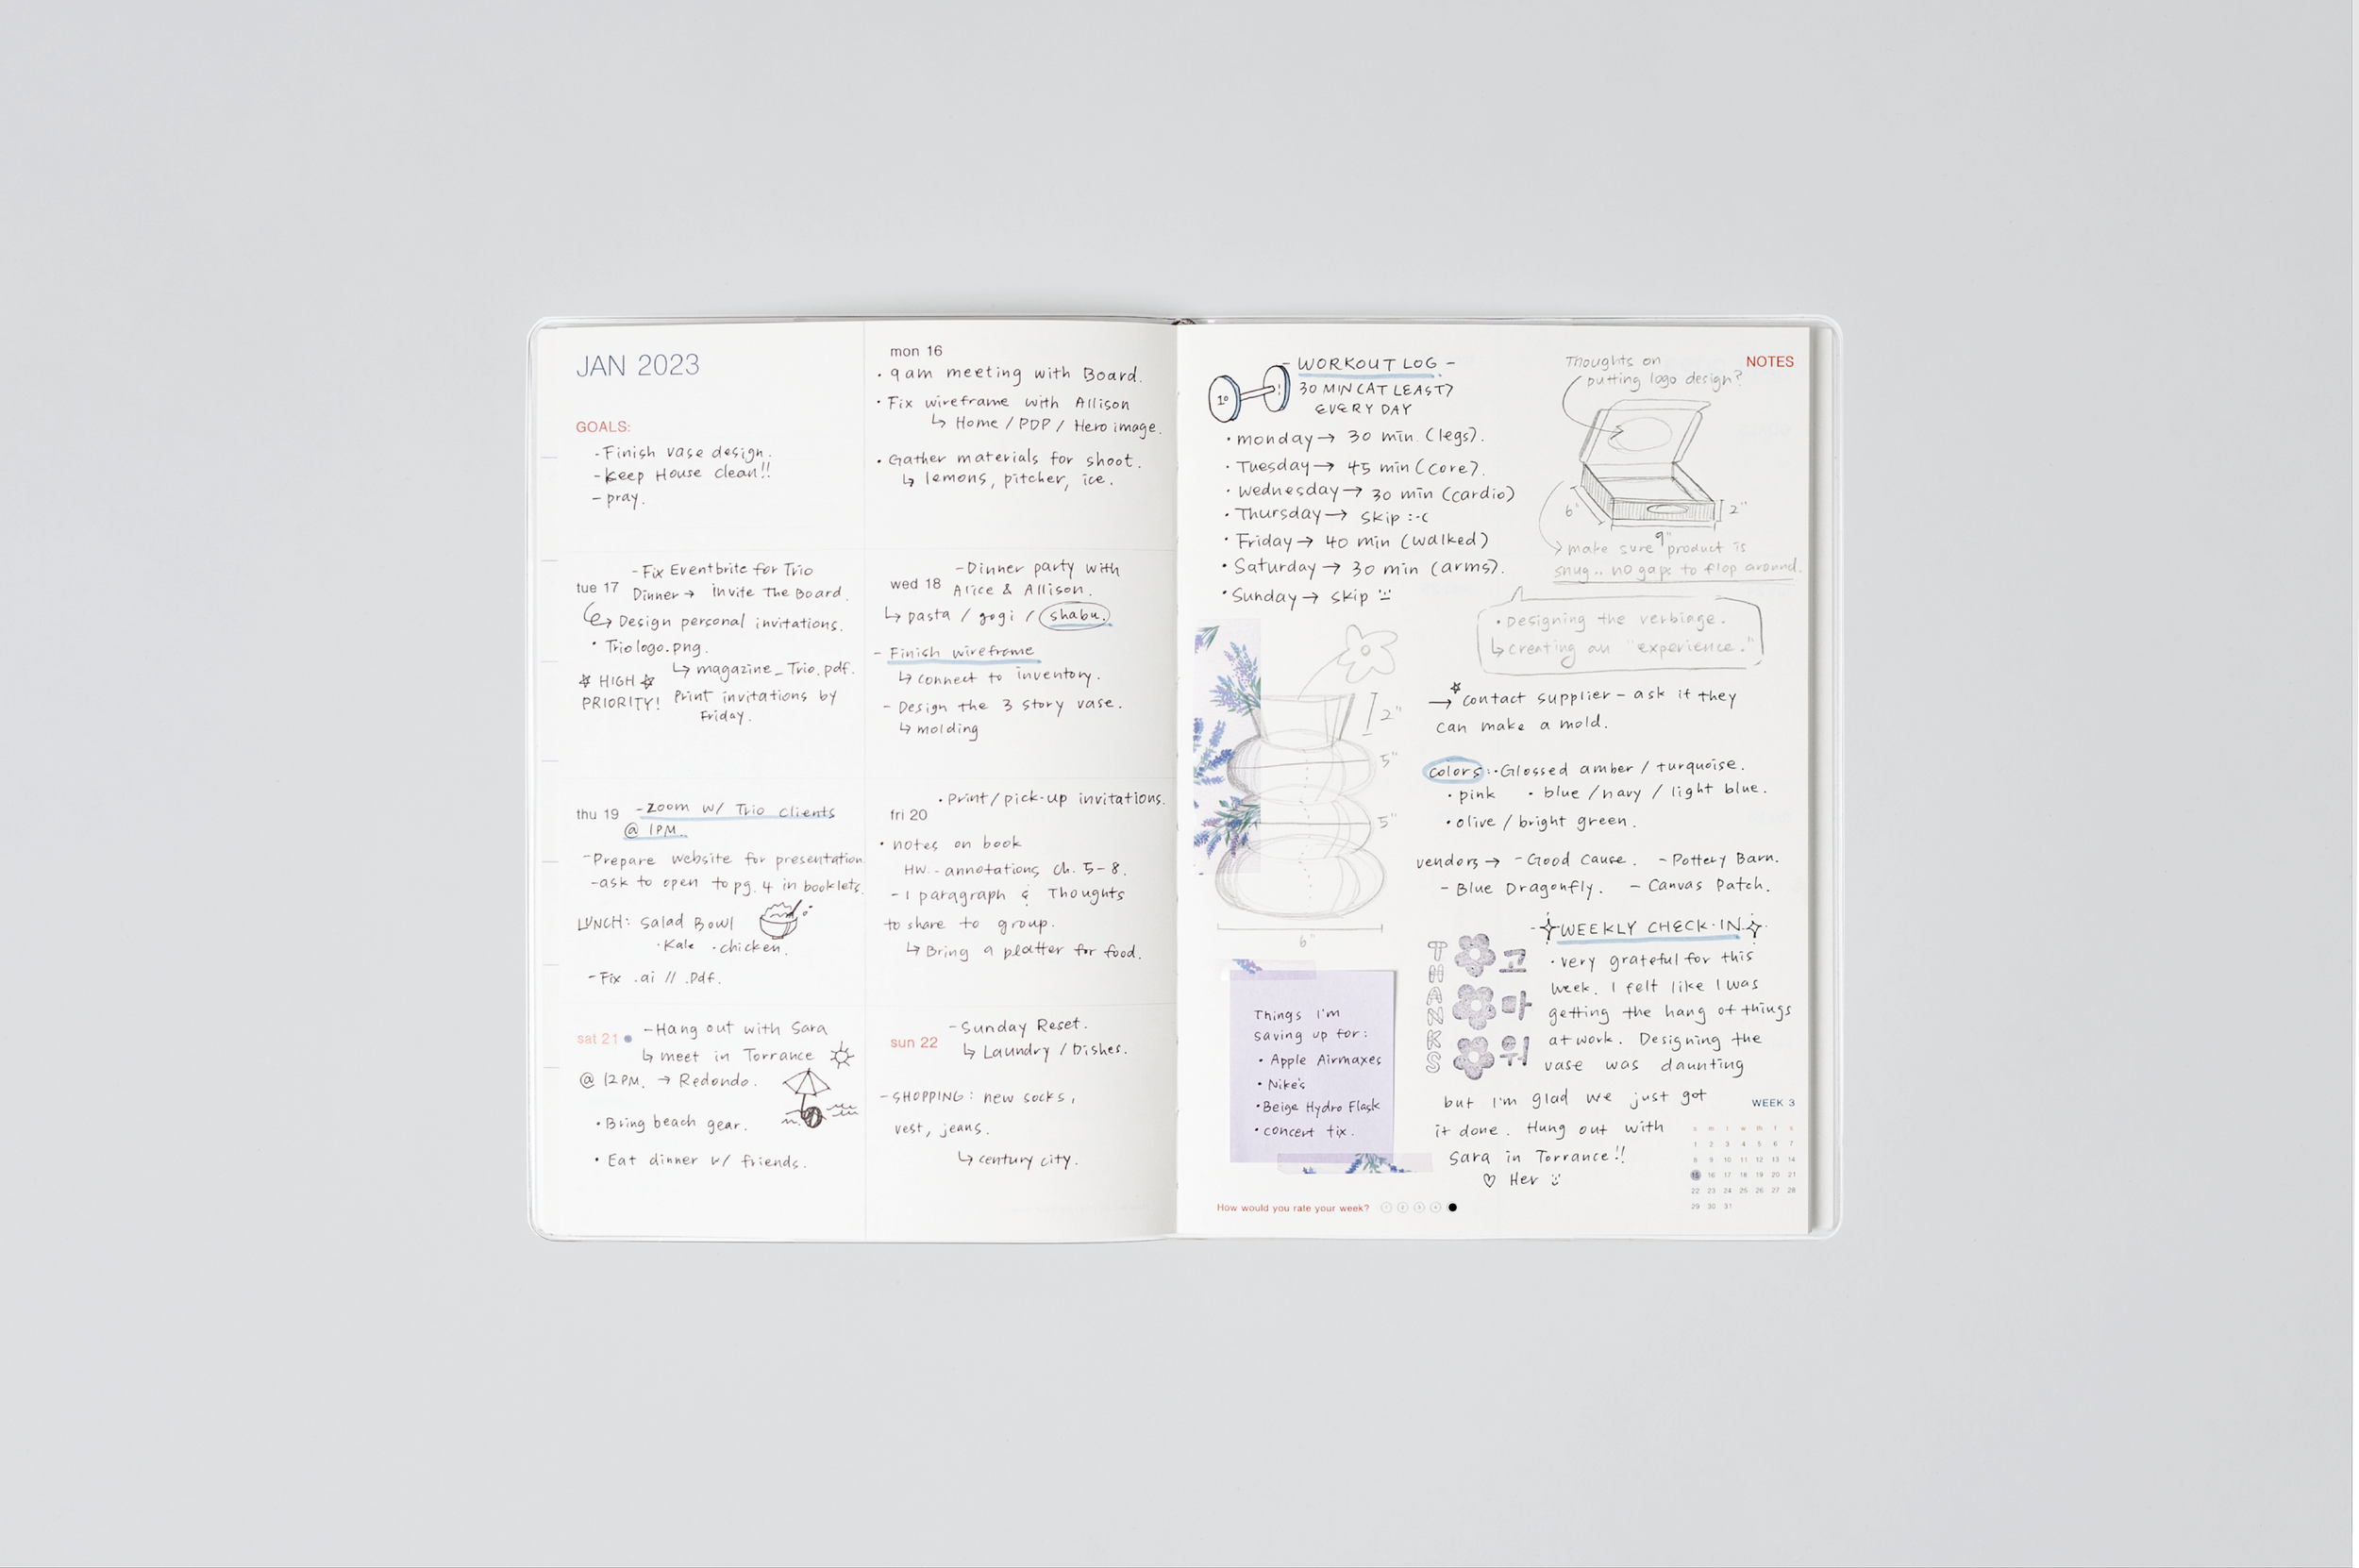 JAN 2023
GOALS:
-Finish vase design.
-keep House clean!!
-pray.
mon 16
• 9am meeting with Board.
• Fix wireframe with Allison
↳ Home / PDP / Hero image.
• Gather materials for shoot.
↳ lemons, pitcher, ice.
tue 17
-Fix Eventbrite for Trio
Dinner → Invite The Board.
↳ Design personal invitations.
• Triologo.png.
↳ magazine_Trio.pdf.
☆ HIGH ☆
PRIORITY!
Print invitations by
Friday.
wed 18
-Dinner party with
Alice & Allison.
↳ pasta / gogi / shabu.
- Finish wireframe
↳ connect to inventory.
- Design the 3 story vase.
↳ molding
thu 19
-Zoom w/ Trio clients
@ 1PM.
-Prepare website for presentation
-ask to open to pg. 4 in booklets.
LUNCH: Salad Bowl
•Kale •chicken.
-Fix .ai // .pdf.
fri 20
•Print/pick-up invitations.
• notes on book
HW: -annotations ch. 5-8.
-1 paragraph & Thoughts
to share to group.
↳ Bring a platter for food.
sat 21
-Hang out with Sara
↳ meet in Torrance
@ 12PM. → Redondo.
•Bring beach gear.
• Eat dinner w/ friends.
sun 22
-Sunday Reset.
↳ Laundry / Dishes.
-SHOPPING: new socks,
vest, jeans.
↳ century city.
- WORKOUT LOG -
30 MIN (AT LEAST)
EVERY DAY
10
• monday → 30 min. (legs).
• Tuesday → 45 min (core).
• wednesday → 30 min (cardio)
• Thursday → skip :-(
• Friday → 40 min (walked)
• Saturday → 30 min (arms).
• Sunday → skip
NOTES
Thoughts on
putting logo design?
6"
2"
9"
make sure product is
snug.. no gaps to flop around.
• Designing the verbiage.
↳ creating an "experience."
2"
5"
5"
6"
→ ☆contact supplier - ask if they
can make a mold.
colors: •Glossed amber / turquoise.
• pink • blue / navy / light blue.
• olive / bright green.
vendors → -Good Cause. -Pottery Barn.
- Blue Dragonfly. - Canvas Patch.
WEEKLY CHECK-IN
THANKS
고
마
워
• very grateful for this
week. I felt like I was
getting the hang of things
at work. Designing the
vase was daunting
but I'm glad we just got
it done. Hung out with
Sara in Torrance!!
♡ Her
Things I'm
saving up for:
• Apple Airmaxes
• Nike's
•Beige Hydro Flask
• concert tix.
How would you rate your week? 1 2 3 4
WEEK 3
s m t w th f s
1 2 3 4 5 6 7
8 9 10 11 12 13 14
15 16 17 18 19 20 21
22 23 24 25 26 27 28
29 30 31